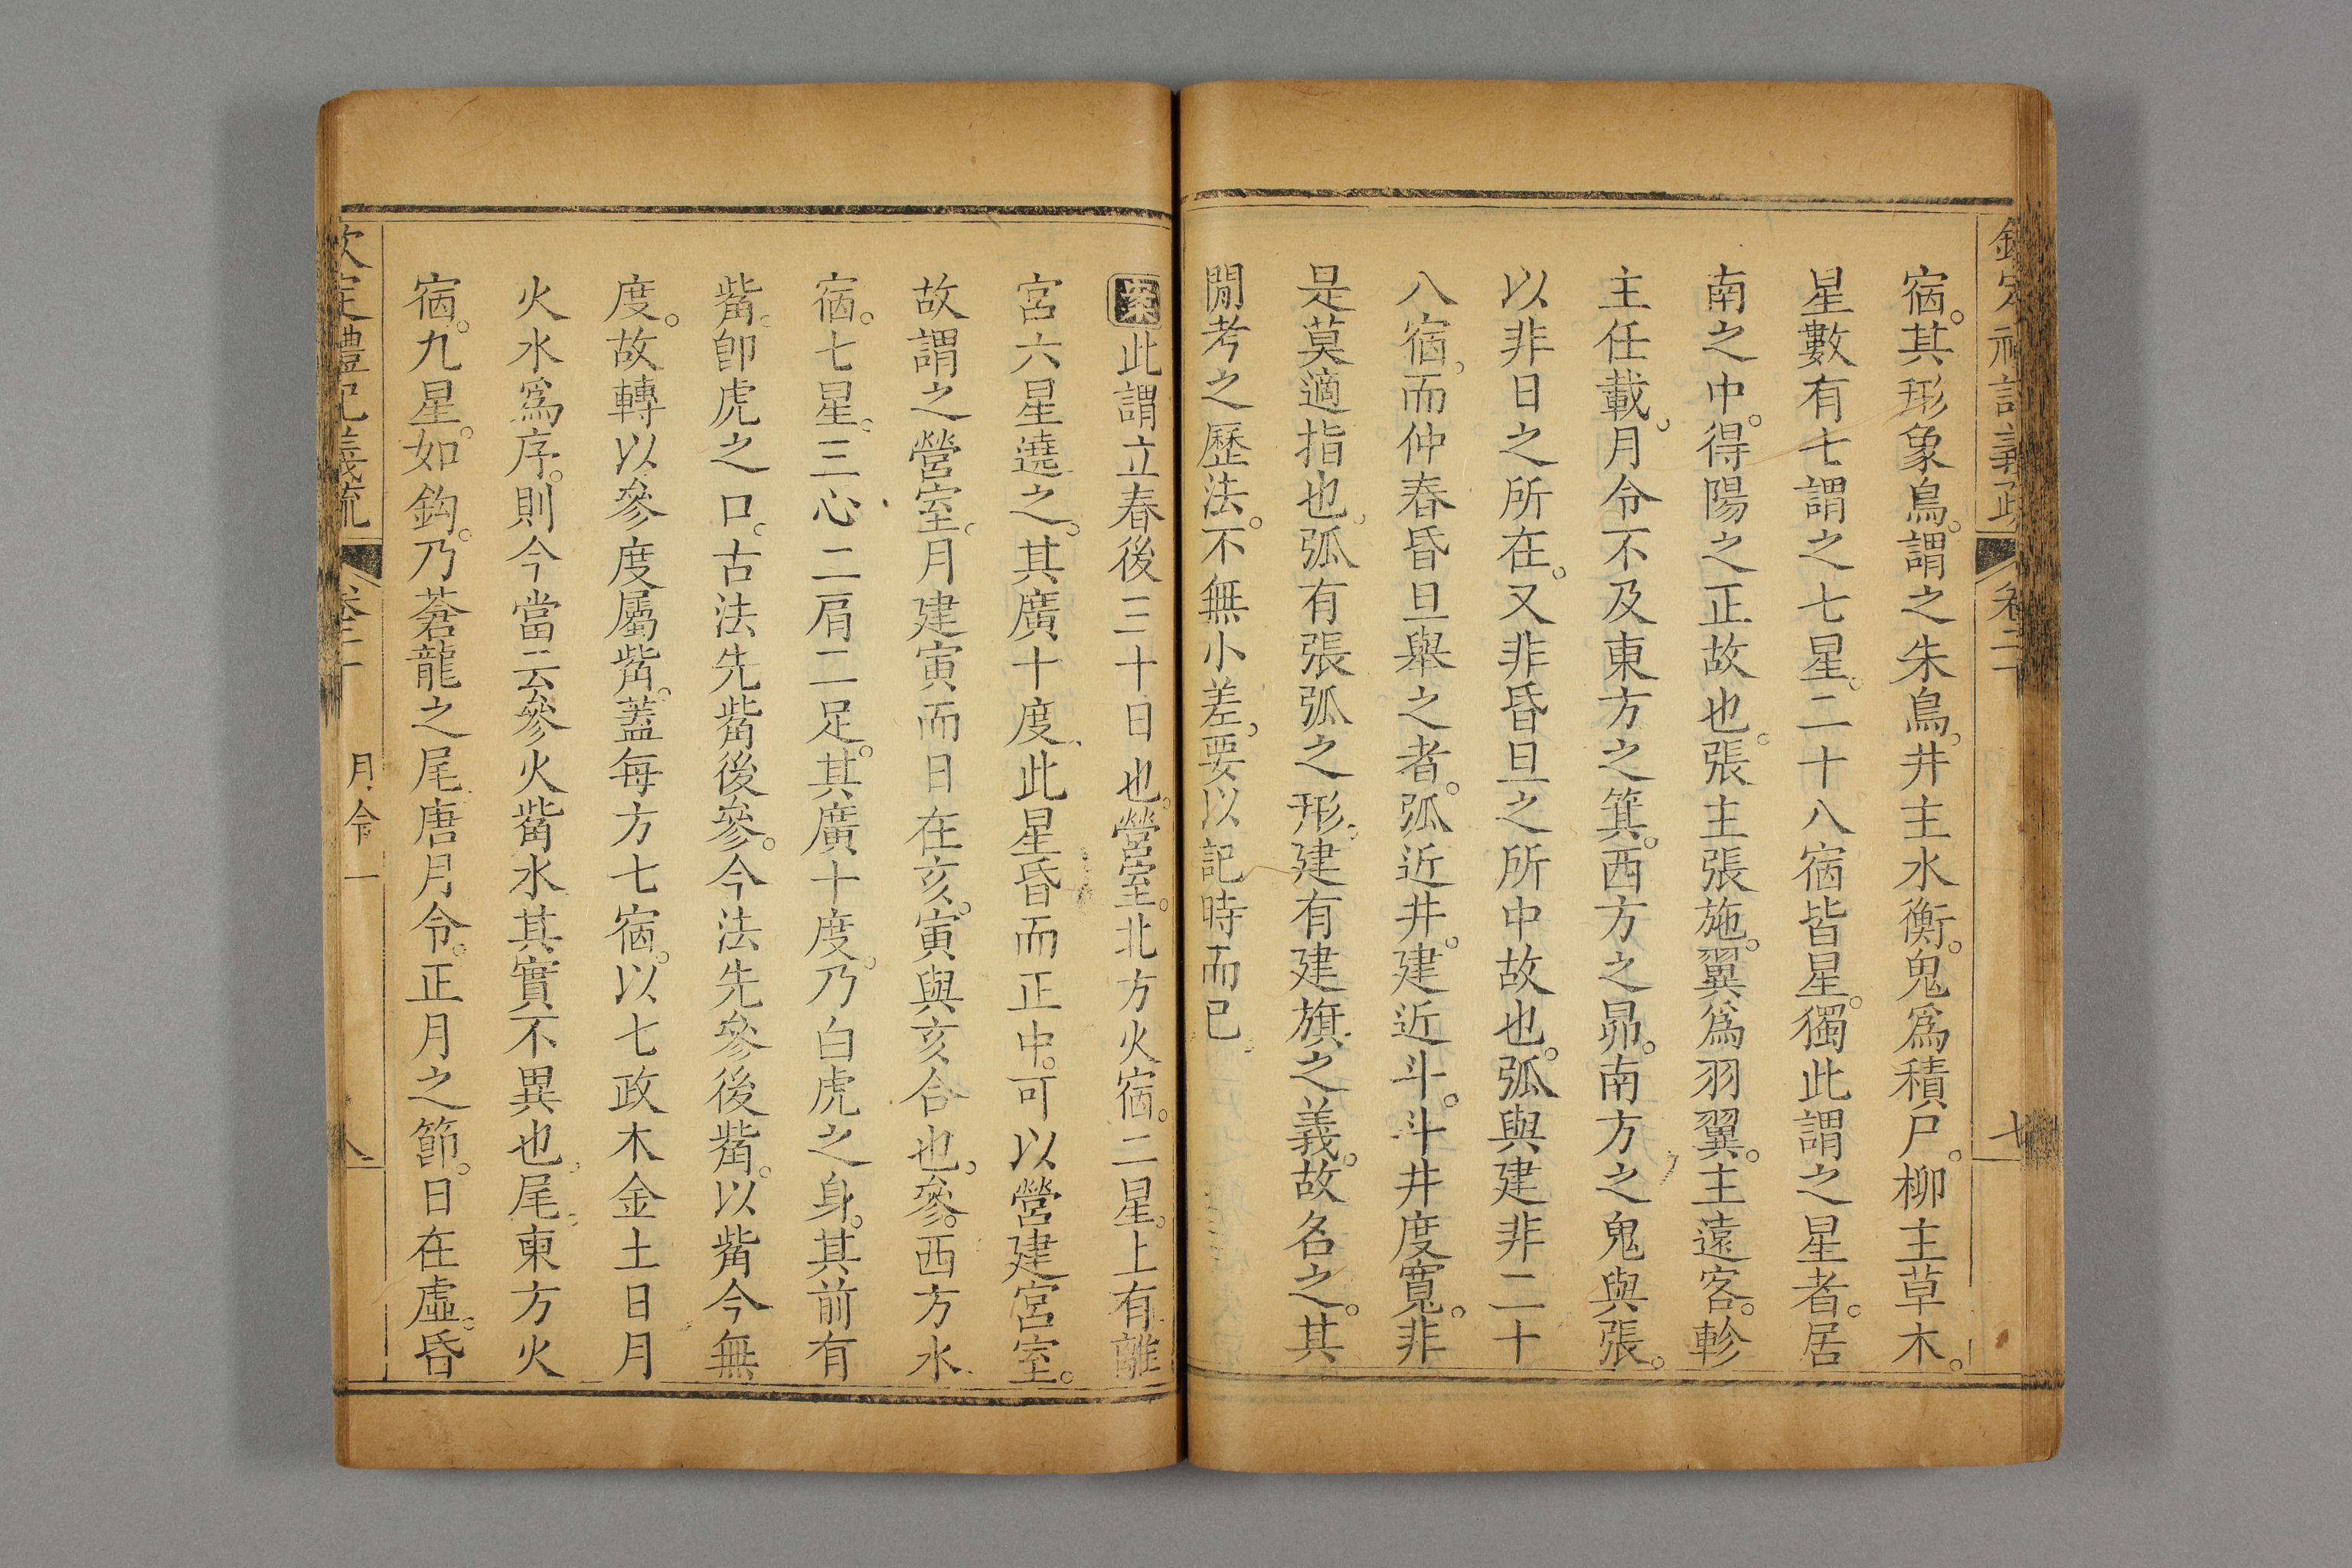 宿。其形象鳥。謂之朱鳥。井主水衡。鬼爲積尸。柳主草木。
星數有七謂之七星。二十八宿皆星。獨此謂之星者。居
南之中。得陽之正故也。張主張施。翼爲羽翼。主遠客。軫
主任載。月令不及東方之箕。西方之昴。南方之鬼與張。
以非日之所在。又非昏旦之所中故也。弧與建非二十
八宿。而仲春昏旦舉之者。弧近井。建近斗。斗井度寬。非
是莫適指也。弧有張弧之形。建有建旗之義。故名之。其
閒考之歷法。不無小差。要以記時而已
案此謂立春後三十日也。營室。北方火宿。二星。上有離
宮六星遶之。其廣十度。此星昏而正中。可以營建宮室。
故謂之營室。月建寅而日在亥。寅與亥合也。參。西方水
宿。七星。三心二肩二足。其廣十度。乃白虎之身。其前有
觜。卽虎之口。古法先觜後參。今法先參後觜。以觜今無
度。故轉以參度屬觜。蓋每方七宿。以七政木金土日月
火水爲序。則今當云參火觜水其實不異也。尾。東方火
宿。九星。如鈎。乃蒼龍之尾唐月令。正月之節。日在虛。昏
欽定禮記義疏 卷二十 月令一 八